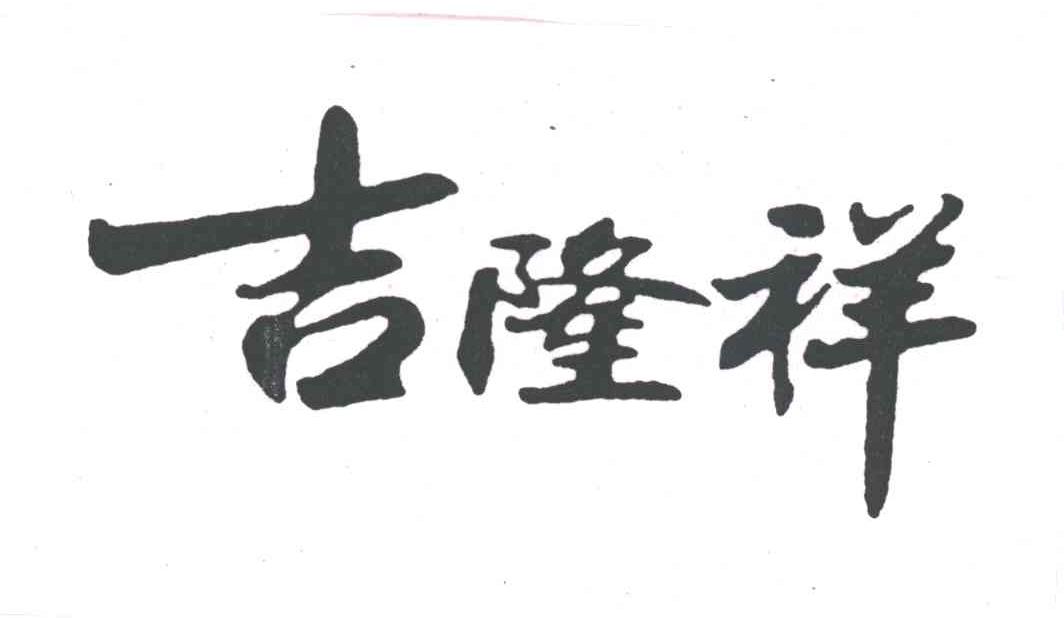 吉隆祥